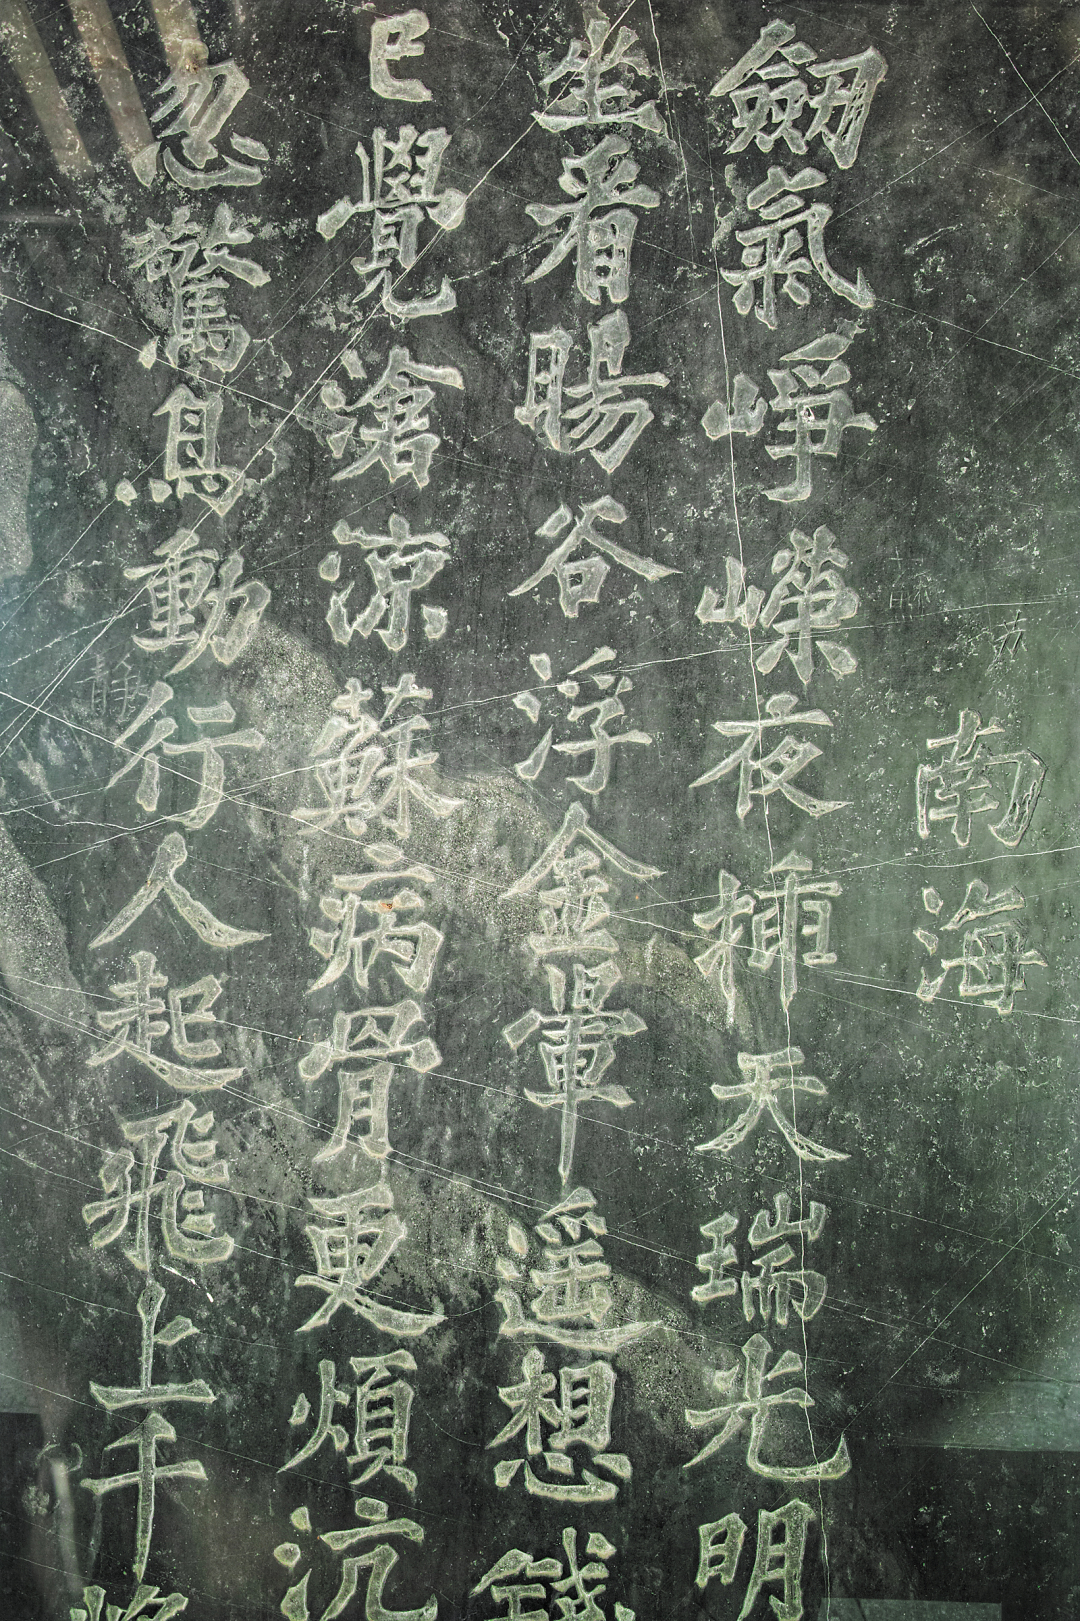 南海
劒氣崢嶸夜挿天瑞光明
坐看暘谷浮金暈遥想錢
已覺滄凉蘇病骨更煩沆
忽驚鳥動行人起飛上千